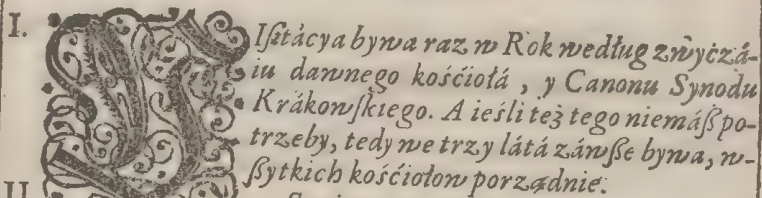 I.
VIſitácya bywa raz w Rok według zwyczá-
iu dawnego kośćiołá, y Canonu Synodu
Krákowſkiego. A ieśli też tego niemáſz po-
trzeby, tedy we trzy látá záwſze bywa, w-
ſzytkich kośćiołow porządnie.
II